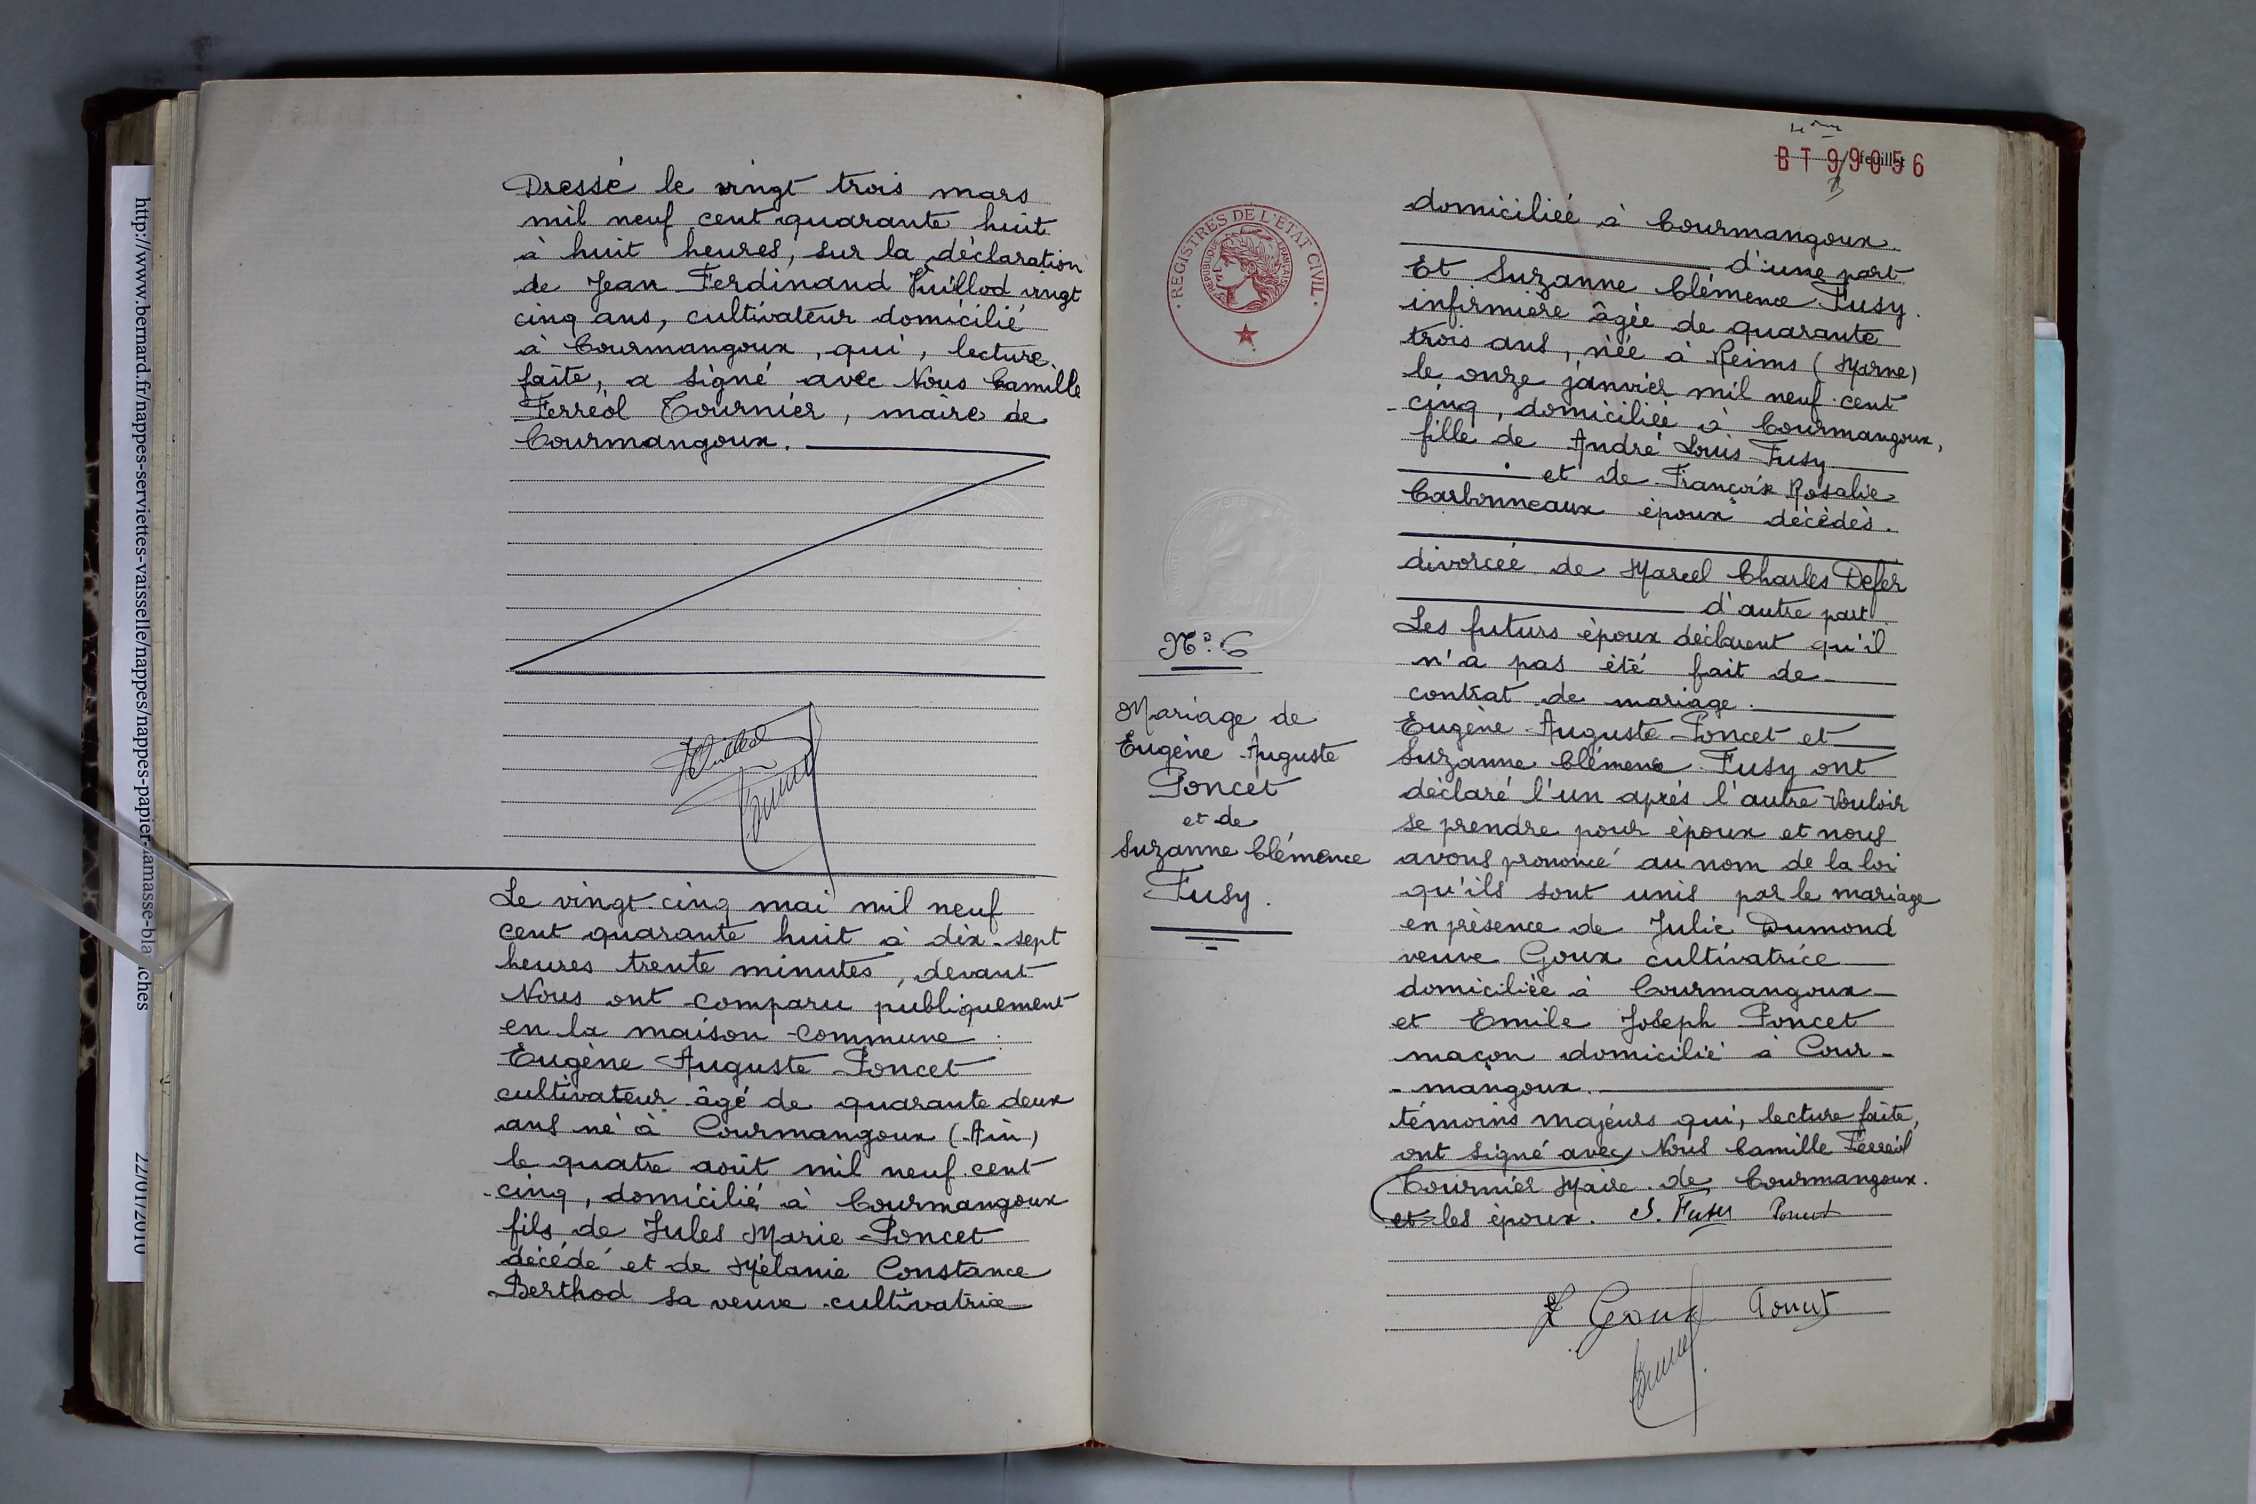 Dressé le vingt trois mars
mil neuf cent quarante huit
à huit heures, sur la déclaration
de Jean Ferdinand Vuillod vingt
cinq ans, cultivateur domicilié
à Courmangoux, qui, lecture
faite, a signé avec Nous Camille
Ferréol Tournier, maire de
Courmangoux.
Le vingt-cinq mai mil neuf
cent quarante huit à dix-sept
heures trente minutes, devant
Nous ont comparu publiquement
en la maison commune :
Eugène Auguste Poncet
cultivateur âgé de quarante deux
ans né à Courmangoux (Ain)
le quatre août mil neuf cent
cinq, domicilié à Courmangoux
fils de Jules Marie Poncet
décédé et de Mélanie Constance
Berthod sa veuve cultivatrice
http://www.bernard.fr/nappes-serviettes-vaisselle/nappes/nappes-papier-damasse-blanches
22/01/2010
BT 99056
feuillet
REGISTRES DE L'ETAT CIVIL
REPUBLIQUE FRANCAISE
N° 6
Mariage de
Eugène Auguste
Poncet
et de
Suzanne Clémence
Fusy.
domiciliée à Courmangoux
d'une part
Et Suzanne Clémence Fusy.
infirmière âgée de quarante
trois ans, née à Reims (Marne)
le onze janvier mil neuf cent
cinq, domiciliée à Courmangoux,
fille de André Louis Fusy
et de Françoix Rosalie
Carbonneaux époux décédés.
divorcée de Marcel Charles Defer
d'autre part
Les futurs époux déclarent qu'il
n'a pas été fait de
contrat de mariage.
Eugène Auguste Poncet et
Suzanne Clémence Fusy ont
déclaré l'un après l'autre vouloir
se prendre pour époux et nous
avons prononcé au nom de la loi
qu'ils sont unis par le mariage
en présence de Julie Dumond
veuve Goux cultivatrice
domiciliée à Courmangoux
et Emile Joseph Poncet
maçon domicilié à Cour-
-mangoux.
témoins majeurs qui, lecture faite,
ont signé avec Nous Camille Ferréol
Tournier Maire de Courmangoux.
et les époux. S. Fusy Poncet
Goux Poncet